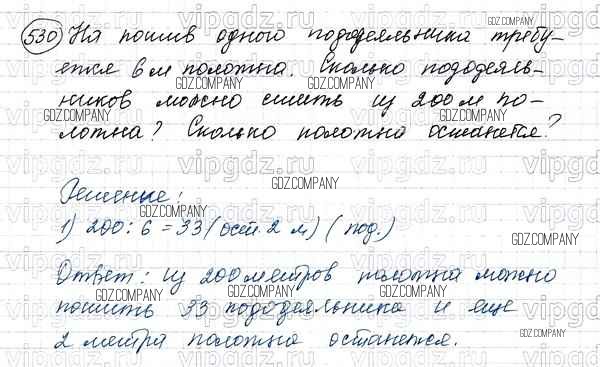 530 На пошив одного пододеяльника требу-
ется 6 м полотна. Сколько пододеяль-
ников можно сшить из 200 м по-
лотна? Сколько полотна останется?
Решение:
1) 200 : 6 = 33 (ост. 2 м) ( под.)
Ответ: из 200 метров полотна можно
пошить 33 пододеяльника и еще
2 метра полотна останется.